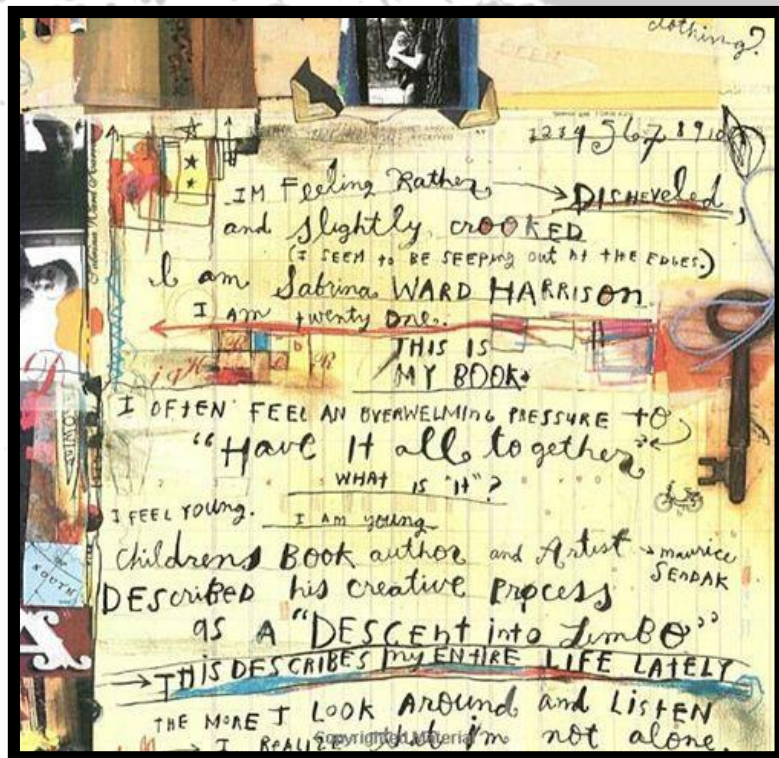 clothing?
1 2 3 4 5 6 7 8 9 10
IM FEELING RATHER → DISHEVELED,
and slightly CROOKED
(I SEEM to BE SEEPING OUT AT THE EDGES.)
I am Sabrina WARD HARRISON.
I AM twenty One.
THIS IS
MY BOOK.
I OFTEN FEEL AN OVERWELMING PRESSURE to
"Have It all together"
WHAT IS "It"?
I FEEL YOUNG.
I AM young
Childrens BOOK author and Artist → maurice SENDAK
DEScribED his creative Process
as A "DESCEnt into LimBO"
→ THiS DESCRIBES my ENTIRE LIFE LATELY
THE MORE I LOOK AROUND and LISTEN
→ I REALIZE that I'm not alone.
Copyrighted Material
SOUTH